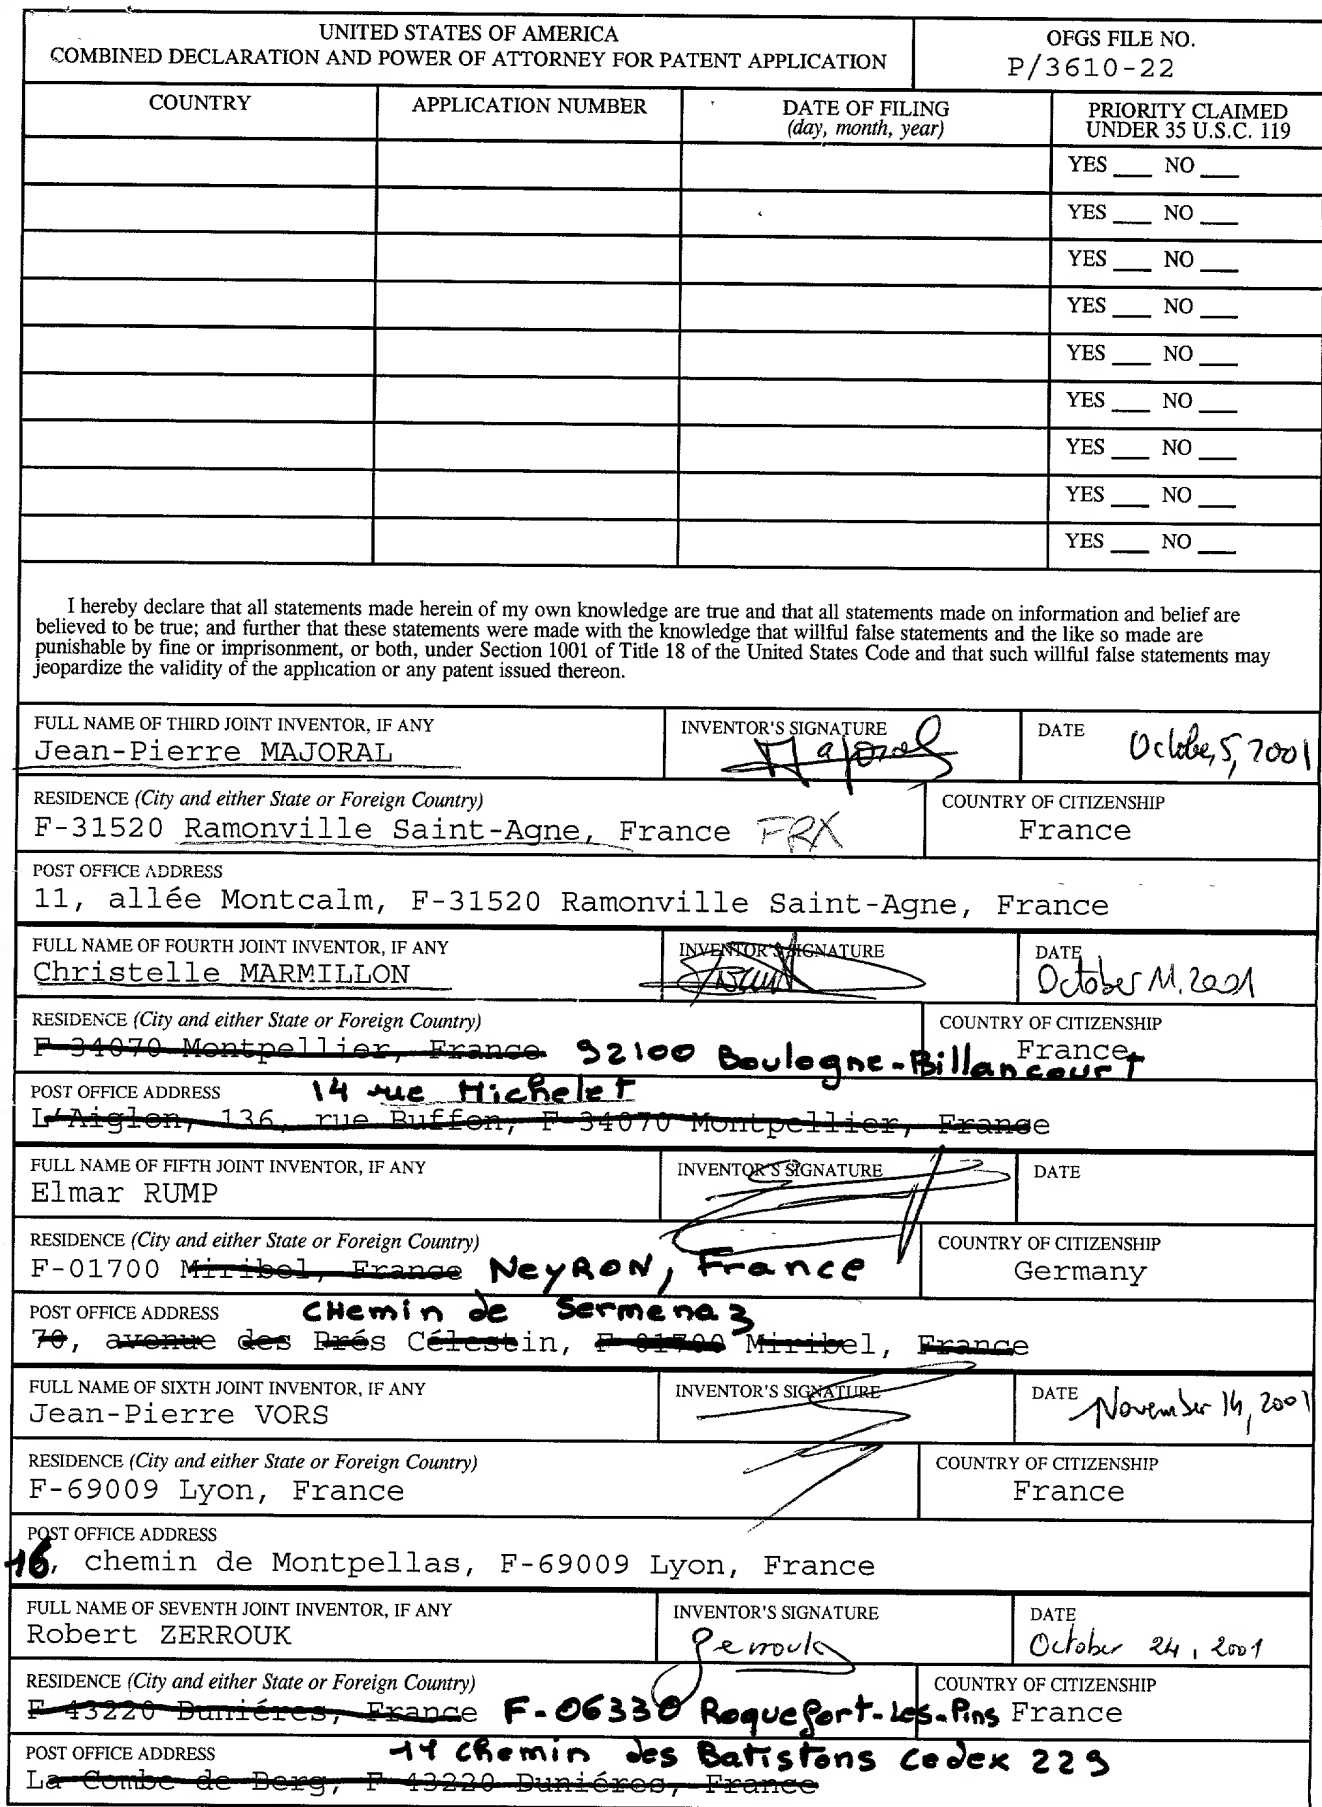 UNITED STATES OF AMERICA
COMBINED DECLARATION AND POWER OF ATTORNEY FOR PATENT APPLICATION
OFGS FILE NO.
P/3610-22
COUNTRY
APPLICATION NUMBER
DATE OF FILING
(day, month, year)
PRIORITY CLAIMED
UNDER 35 U.S.C. 119
YES ___ NO ___
YES ___ NO ___
YES ___ NO ___
YES ___ NO ___
YES ___ NO ___
YES ___ NO ___
YES ___ NO ___
YES ___ NO ___
YES ___ NO ___
I hereby declare that all statements made herein of my own knowledge are true and that all statements made on information and belief are
believed to be true; and further that these statements were made with the knowledge that willful false statements and the like so made are
punishable by fine or imprisonment, or both, under Section 1001 of Title 18 of the United States Code and that such willful false statements may
jeopardize the validity of the application or any patent issued thereon.
FULL NAME OF THIRD JOINT INVENTOR, IF ANY
Jean-Pierre MAJORAL
INVENTOR'S SIGNATURE
Majoral
DATE
October, 5, 2001
RESIDENCE (City and either State or Foreign Country)
F-31520 Ramonville Saint-Agne, France FRX
COUNTRY OF CITIZENSHIP
France
POST OFFICE ADDRESS
11, allée Montcalm, F-31520 Ramonville Saint-Agne, France
FULL NAME OF FOURTH JOINT INVENTOR, IF ANY
Christelle MARMILLON
INVENTOR'S SIGNATURE
DATE
October 11. 2001
RESIDENCE (City and either State or Foreign Country)
F-34070 Montpellier, France 92100 Boulogne-Billancourt
COUNTRY OF CITIZENSHIP
France
POST OFFICE ADDRESS
14 rue Michelet
L'Aiglon, 136, rue Buffon, F-34070 Montpellier, France
FULL NAME OF FIFTH JOINT INVENTOR, IF ANY
Elmar RUMP
INVENTOR'S SIGNATURE
DATE
RESIDENCE (City and either State or Foreign Country)
F-01700 Miribel, France NeyRON, France
COUNTRY OF CITIZENSHIP
Germany
POST OFFICE ADDRESS
CHemin de Sermenaz
70, avenue des Prés Célestin, F-01700 Miribel, France
FULL NAME OF SIXTH JOINT INVENTOR, IF ANY
Jean-Pierre VORS
INVENTOR'S SIGNATURE
DATE
November 14, 2001
RESIDENCE (City and either State or Foreign Country)
F-69009 Lyon, France
COUNTRY OF CITIZENSHIP
France
POST OFFICE ADDRESS
16, chemin de Montpellas, F-69009 Lyon, France
FULL NAME OF SEVENTH JOINT INVENTOR, IF ANY
Robert ZERROUK
INVENTOR'S SIGNATURE
Zerrouk
DATE
October 24, 2001
RESIDENCE (City and either State or Foreign Country)
F-43220 Duniéres, France F-06330 Roquefort-Les-Pins
COUNTRY OF CITIZENSHIP
France
POST OFFICE ADDRESS
14 chemin des Batistons cedex 229
La Combe de Berg, F-43220 Duniéres, France